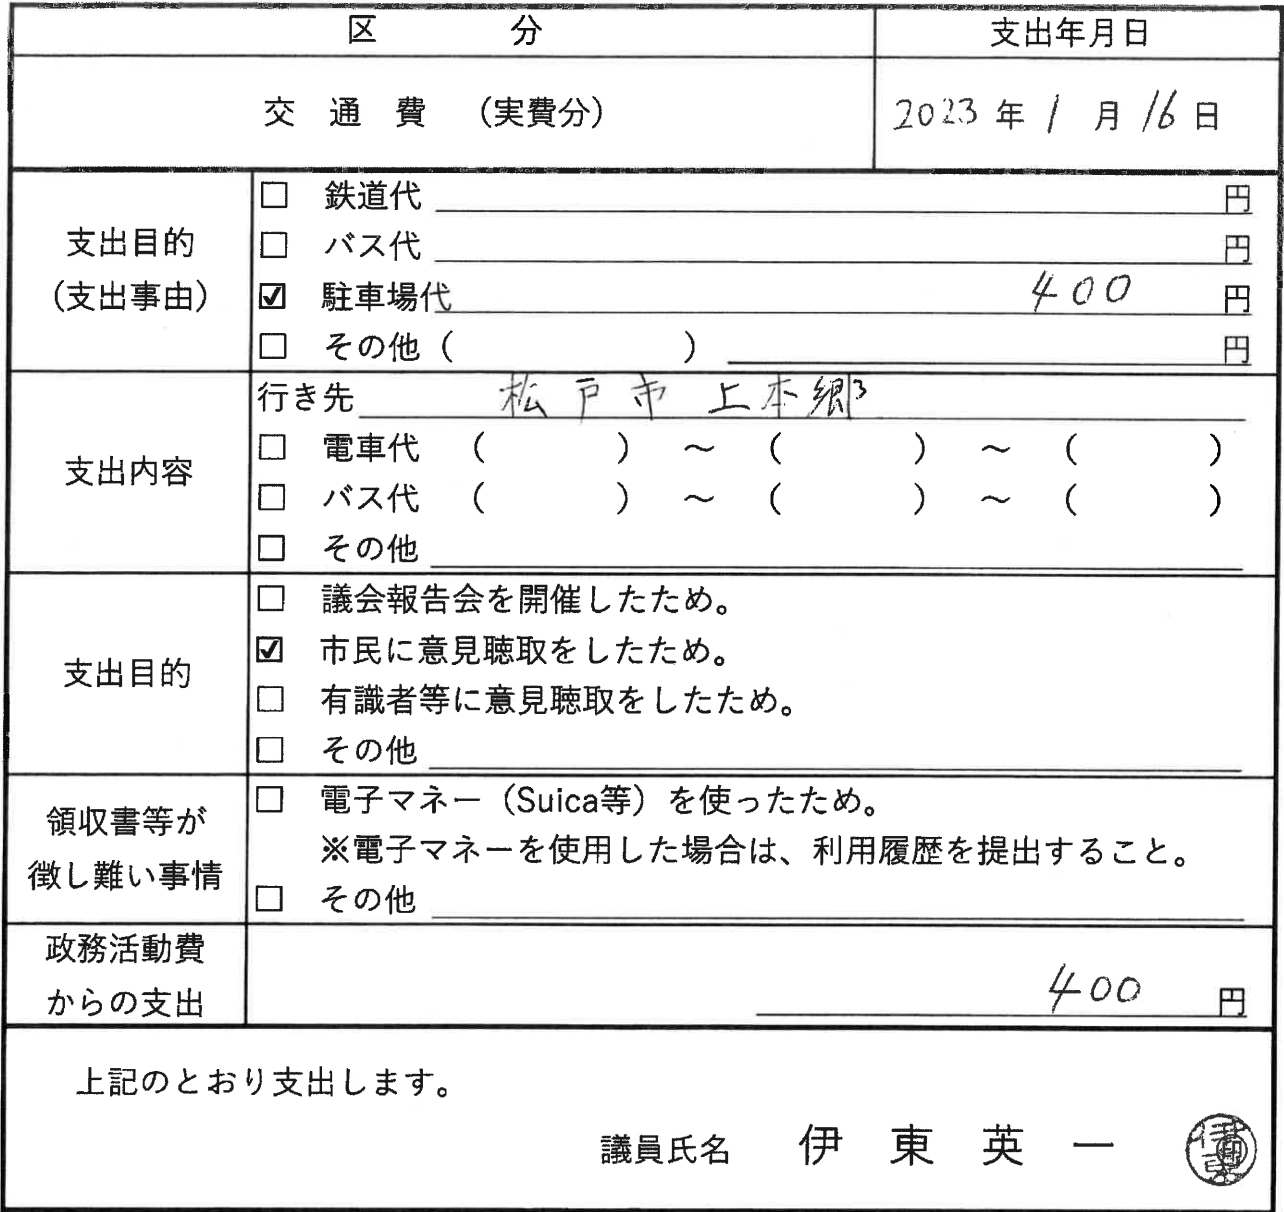 区 分 支出年月日
交 通 費 (実費分) 2023 年 1 月 16 日
支出目的
(支出事由)
☐ 鉄道代 円
☐ バス代 円
☑ 駐車場代 400 円
☐ その他 ( ) 円
支出内容
行き先 松戸市 上本郷
☐ 電車代 ( ) ~ ( ) ~ ( )
☐ バス代 ( ) ~ ( ) ~ ( )
☐ その他
支出目的
☐ 議会報告会を開催したため。
☑ 市民に意見聴取をしたため。
☐ 有識者等に意見聴取をしたため。
☐ その他
領収書等が
徴し難い事情
☐ 電子マネー(Suica等)を使ったため。
※電子マネーを使用した場合は、利用履歴を提出すること。
☐ その他
政務活動費
からの支出
400 円
上記のとおり支出します。
議員氏名 伊 東 英 一 伊東 印